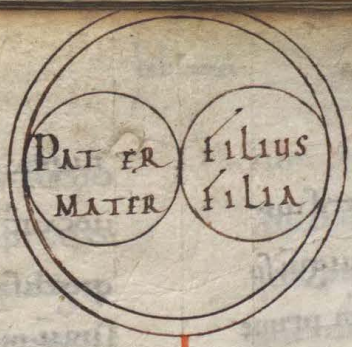 PATER
MATER
FILIUS
FILIA